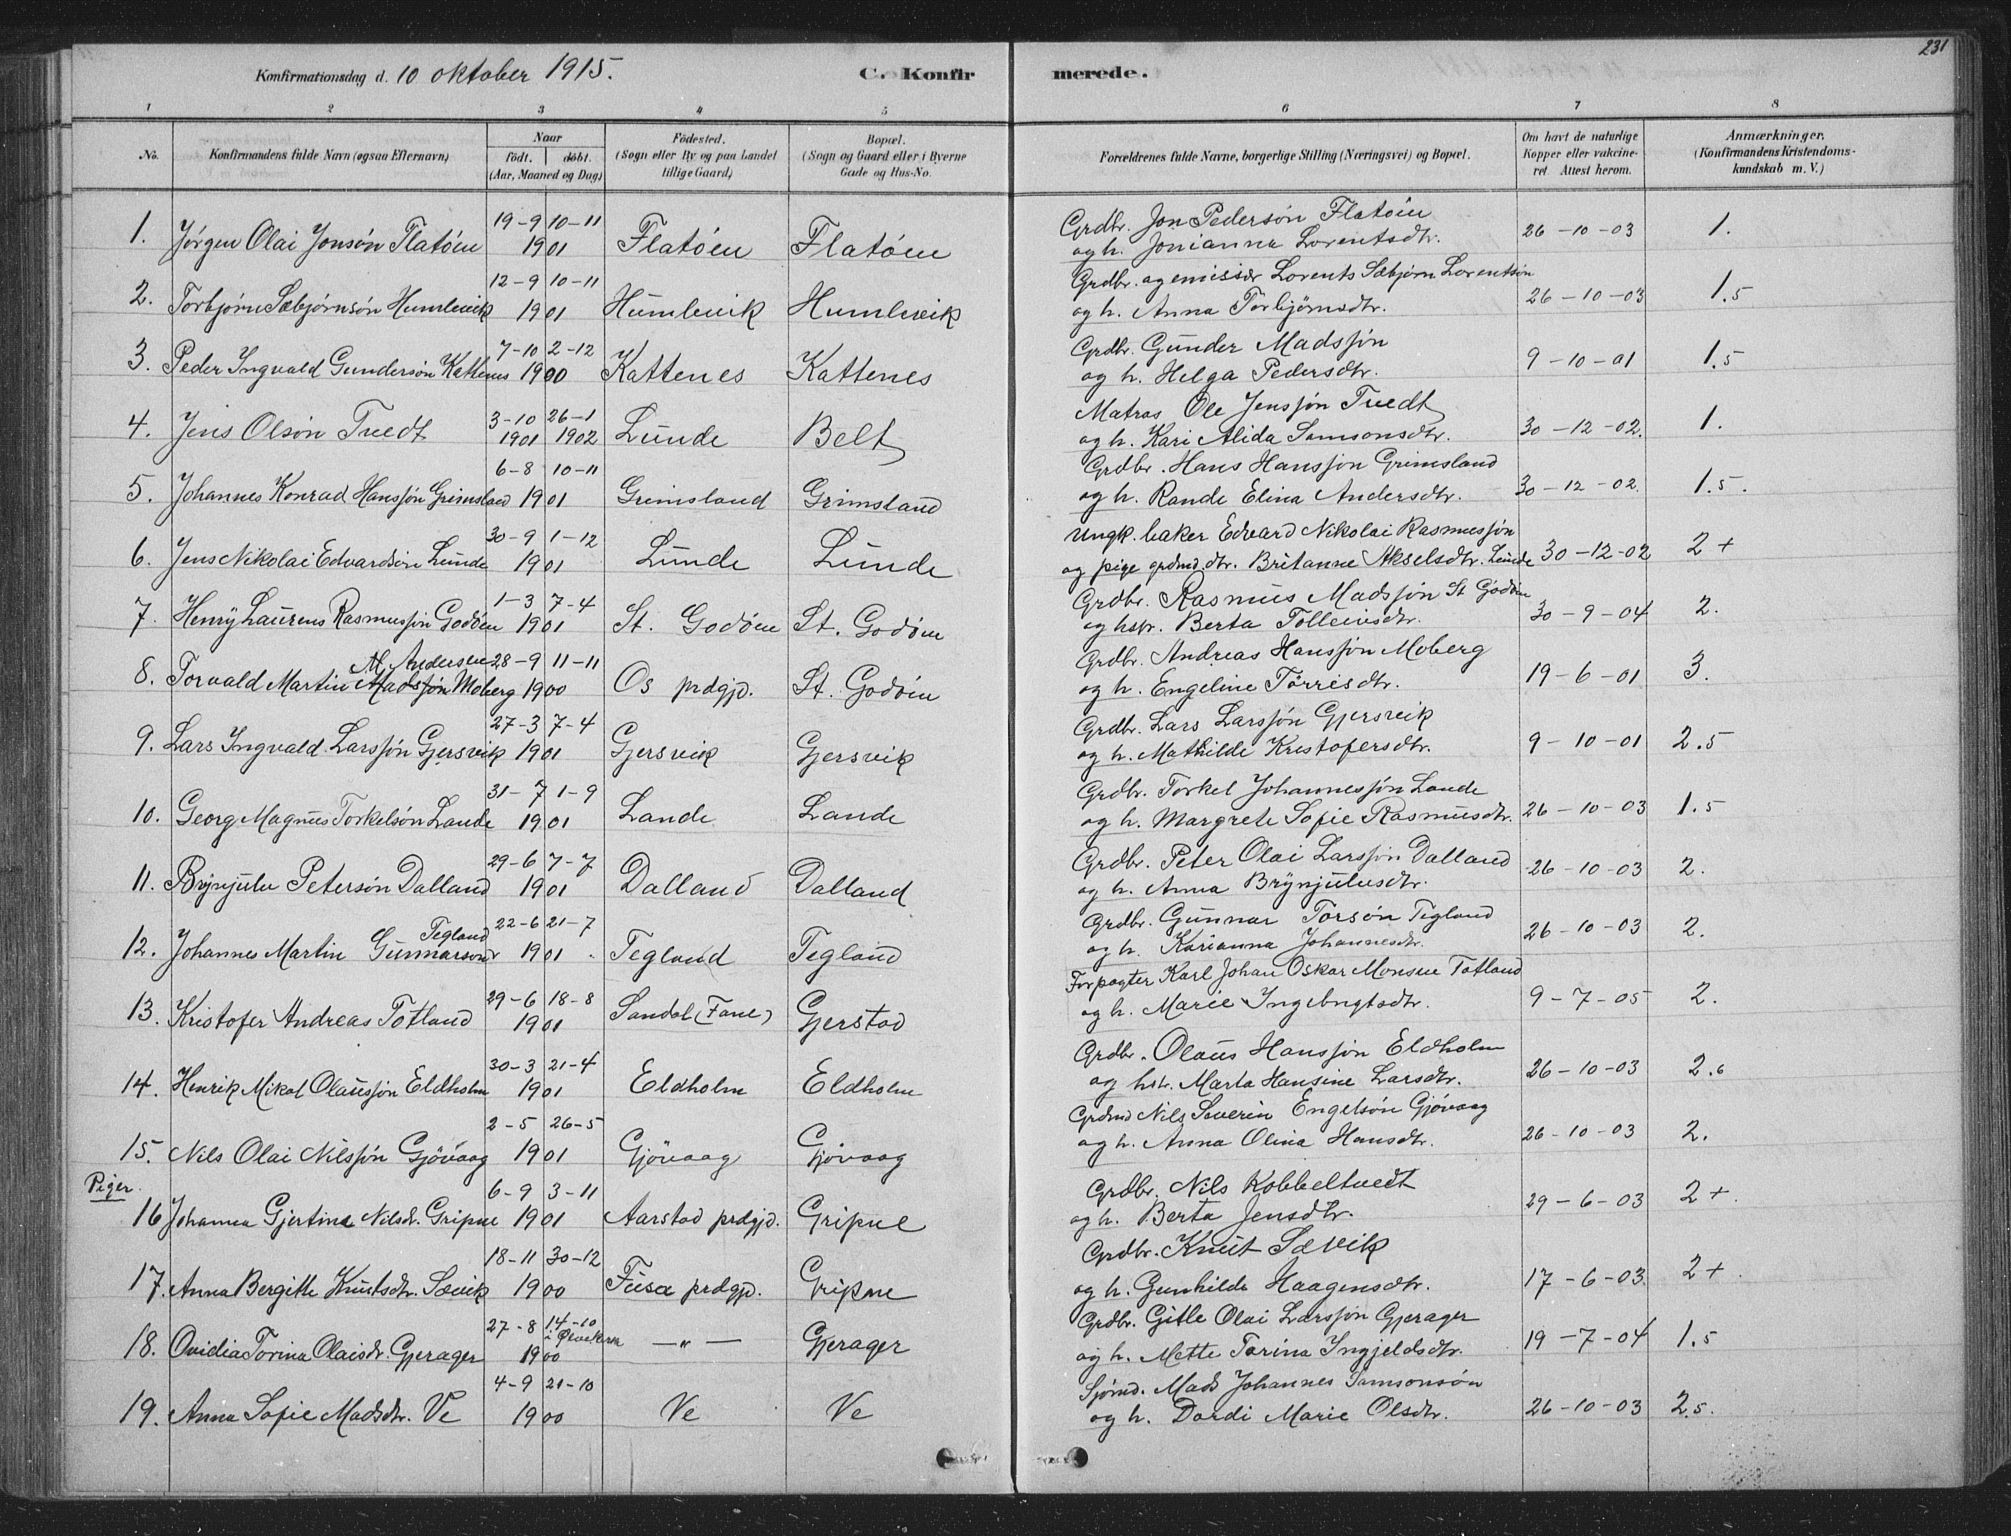 231
Konfirmationsdag d. 10 oktober 1915. C. Konfirmerede.
1 2 3 4 5 6 7 8
No. Konfirmandens fulde Navn (ogsaa Efternavn) Naar födt. döbt. (Aar, Maaned og Dag) Födested. (Sogn eller By og paa Landet tillige Gaard) Bopæl. (Sogn og Gaard eller i Byerne Gade og Hus-No. Forældrenes fulde Navne, borgerlige Stilling (Næringsvei) og Bopæl. Om havt de naturlige Kopper eller vakcineret. Attest herom. Anmærkninger. (Konfirmandens Kristendomskundskab m. V.)
1. Jørgen Olai Jonsøn Flatöen 19-9 10-11 1901 Flatöen Flatöen Grdbr. Jon Pedersøn Flatöen
og h. Jonianna Lorentsdtr. 26-10-03 1.
2. Torbjørn Sæbjørnsøn Humlevik 12-9 10-11 1901 Humlevik Humlevik Grdbr. og emissær Lorents Sæbjørn Lorentsøn
og h. Anna Torbjørnsdtr. 26-10-03 1.5
3. Peder Ingvald Gundersøn Kattenes 7-10 2-12 1900 Kattenes Kattenes Grdbr. Gunder Madssøn
og h. Helga Pedersdtr. 9-10-01 1.5
4. Jens Olsøn Tvedt 3-10 1901 26-1 1902 Lunde Belt Matros Ole Jenssøn Tvedt
og h. Kari Alida Samsonsdtr. 30-12-02. 1.
5. Johannes Konrad Hanssøn Grimsland 6-8 10-11 1901 Grimsland Grimsland Grdbr. Hans Hanssøn Grimsland
og h. Rande Elina Andersdtr. 30-12-02. 1.5.
6. Jens Nikolai Edvardsøn Lunde 30-9 1-12 1901 Lunde Lunde Ungk. baker Edvard Nikolai Rasmussøn
og pige grdmd.dtr. Britanne Akselsdtr. Lunde 30-12-02 2+
7. Henry Laurens Rasmussøn Godöen 1-3 7-4 1901 St. Godöen St. Godöen Grdbr. Rasmus Madssøn St Godöen
og hstr. Berta Tolleivsdtr. 30-9-04 2.
8. Torvald Martin M. Andersen Madssøn Moberg 28-9 11-11 1900 Os prdgjd. St. Godöen Grdbr. Andreas Hanssøn Moberg
og h. Engeline Törrisdtr. 19-6-01 3.
9. Lars Ingvald Larssøn Gjersvik 27-3 7-4 1901 Gjersvik Gjersvik Grdbr. Lars Larssøn Gjersvik
og h. Mathilde Kristofersdtr. 9-10-01 2.5
10. Georg Magnus Torkelsön Lande 31-7 1-9 1901 Lande Lande Grdbr. Torkel Johannessøn Lande
og h. Margrete Sofie Rasmusdtr. 26-10-03 1.5
11. Brynjulv Petersøn Dalland 29-6 7-7 1901 Dalland Dalland Grdbr. Peter Olai Larssøn Dalland
og h. Anna Brynjulvsdtr. 26-10-03 2.
12. Johannes Martin Gunnarson Tegland 22-6 21-7 1901 Tegland Tegland Grdbr. Gunnar Torsøn Tegland
og h. Karianna Johannesdtr. 26-10-03 2.
13. Kristofer Andreas Totland 29-6 18-8 1901 Sandal (Fane) Gjerstad Forpagter Karl Johan Oskar Monsen Totland
og h. Marie Ingebrigtsdtr. 9-7-05 2.
14. Henrik Mikal Olaussøn Eldholm 30-3 21-4 1901 Eldholm Eldholm Grdbr. Olaus Hanssøn Eldholm
og hstr. Marta Hansine Larsdtr. 26-10-03 2.
15. Nils Olai Nilssøn Gjövaag 2-5 26-5 1901 Gjövaag Gjövaag Grdmd Nils Severin Engelsön Gjövaag
og h. Anna Olina Hansdtr. 26-10-03 2.
Piger.
16 Johanna Gjertine Nilsdr. Gripne 6-9 3-11 1901 Aarstad prdgjd. Gripne Grdbr. Nils Kobbeltvedt
og h. Berta Jensdtr. 29-6-03 2+.
17. Anna Bergitte Knutsdtr. Sævik 18-11 30-12 1900 Fusa prdgjd. Gripne Grdbr. Knut Sævik
og h. Gunhilde Haagensdtr. 17-6-03. 2+.
18. Ovidia Torina Olaisdr. Gjerager 27-8 14-10 1900 —„— Gjerager Grdbr. Gitle Olai Larssøn Gjerager
og h. Mette Torina Ingjeldsdtr. 19-7-04 1.5
19. Anna Sofie Madsdtr. Ve 4-9 21-10 1900 Ve Ve Sjömd. Mads Johannes Samsonsøn
og h. Dordi Marie Olsdtr. 26-10-03 2.5.